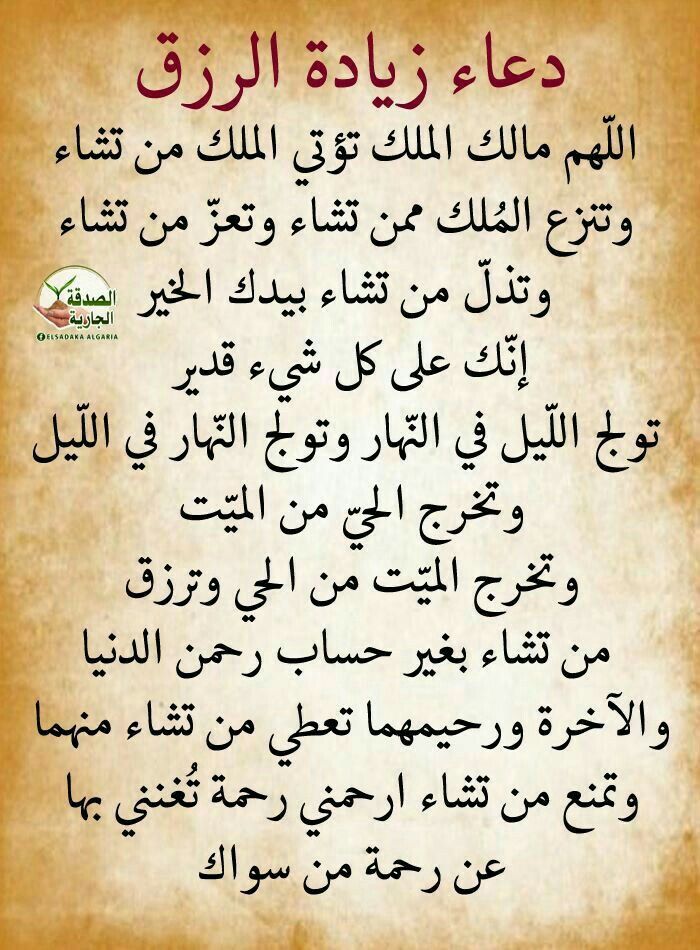 دعاء زيادة الرزق
اللّهم مالك الملك تؤتي الملك من تشاء
وتنزع المُلك ممن تشاء وتعزّ من تشاء
وتذلّ من تشاء بيدك الخير
الصدقة
الجارية
ELSADAKA ALGARIA
إنّك على كل شيء قدير
تولج اللّيل في النّهار وتولج النّهار في اللّيل
وتخرج الحيّ من الميّت
وتخرج الميّت من الحي وترزق
من تشاء بغير حساب رحمن الدنيا
والآخرة ورحيمهما تعطي من تشاء منهما
وتمنع من تشاء ارحمني رحمة تُغنني بها
عن رحمة من سواك